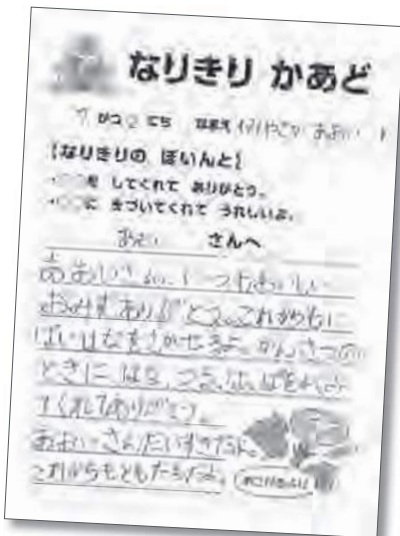 なりきり かあど
7 がつ にち なまえ( あおい )
【なりきりの ぽいんと】
・○○を してくれて ありがとう。
・○○に きづいてくれて うれしいよ。
あおい さんへ
あおいさん、いつもおいしい
おみずありがとう。これからもい
っぱいはなをさかせるよ。かんさつの
ときに、はな、つる、はっぱを
くれてありがとう。
あおいさんだいすきだよ。
これからもともだちだよ。